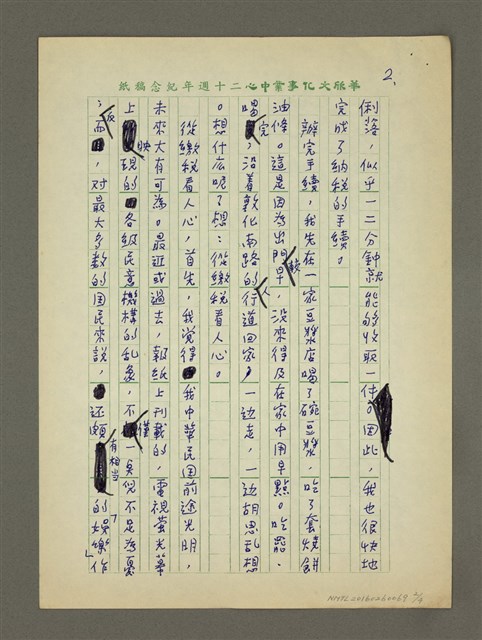 華欣文化事業中心二十週年紀念稿紙
2.
俐落，似乎一二分鐘就能夠收取一件。因此，我也很快地
完成了納稅的手續。
辦完手續，我先在一家豆漿店喝了碗豆漿，吃了套燒餅
油條。這是因為出門較早，沒來得及在家中用早點。吃罷、
喝完，沿着敦化南路的人行道回家，一边走，一边胡思乱想
。想什広呢？想：從繳稅看人心。
從繳稅看人心，首先，我覺得我中華民国前途光明，
未來大有可為。最近或過去，報紙上刊載的，電視螢光幕
上映現的各級民意機構的乱象，不僅一臭似不足為憂
；反而，对最大多數的国民來說，还頗有相当的「娛樂」作
NMTL20160260069 2/4